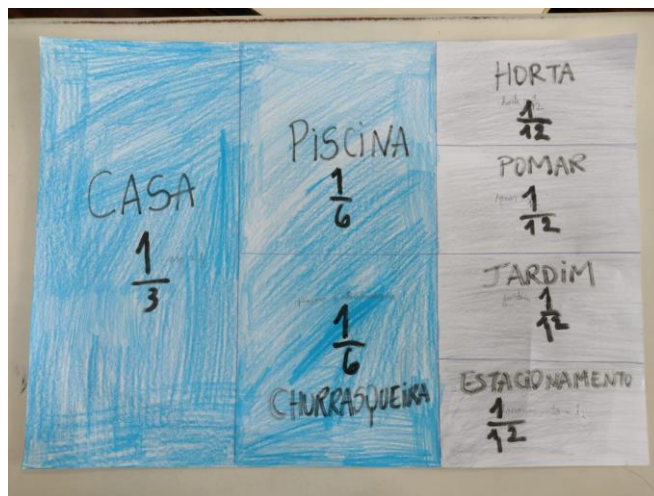 CASA
1
3
PISCINA
1
6
1
6
CHURRASQUEIRA
HORTA
1
12
POMAR
1
12
JARDIM
1
12
ESTACIONAMENTO
1
12